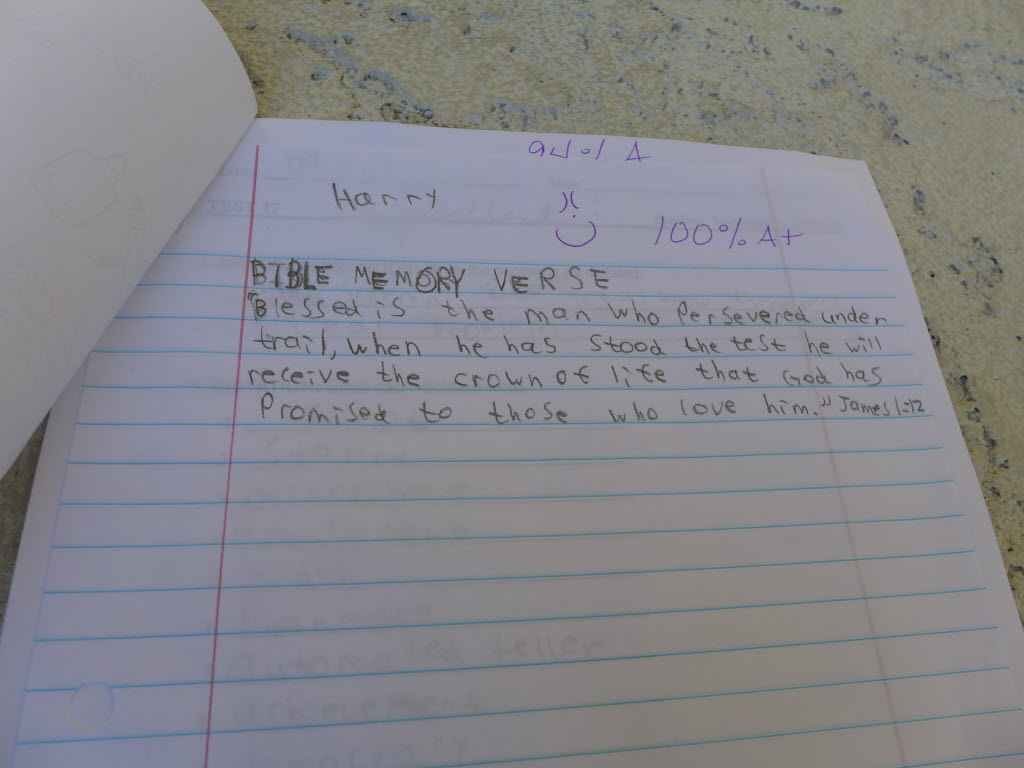 94% A
Harry
100% A+
BIBLE MEMORY VERSE
"Blessed is the man who Persevered under
trail, when he has stood the test he will
receive the crown of life that God has
Promised to those who love him." James 1:12
automated teller
achievement